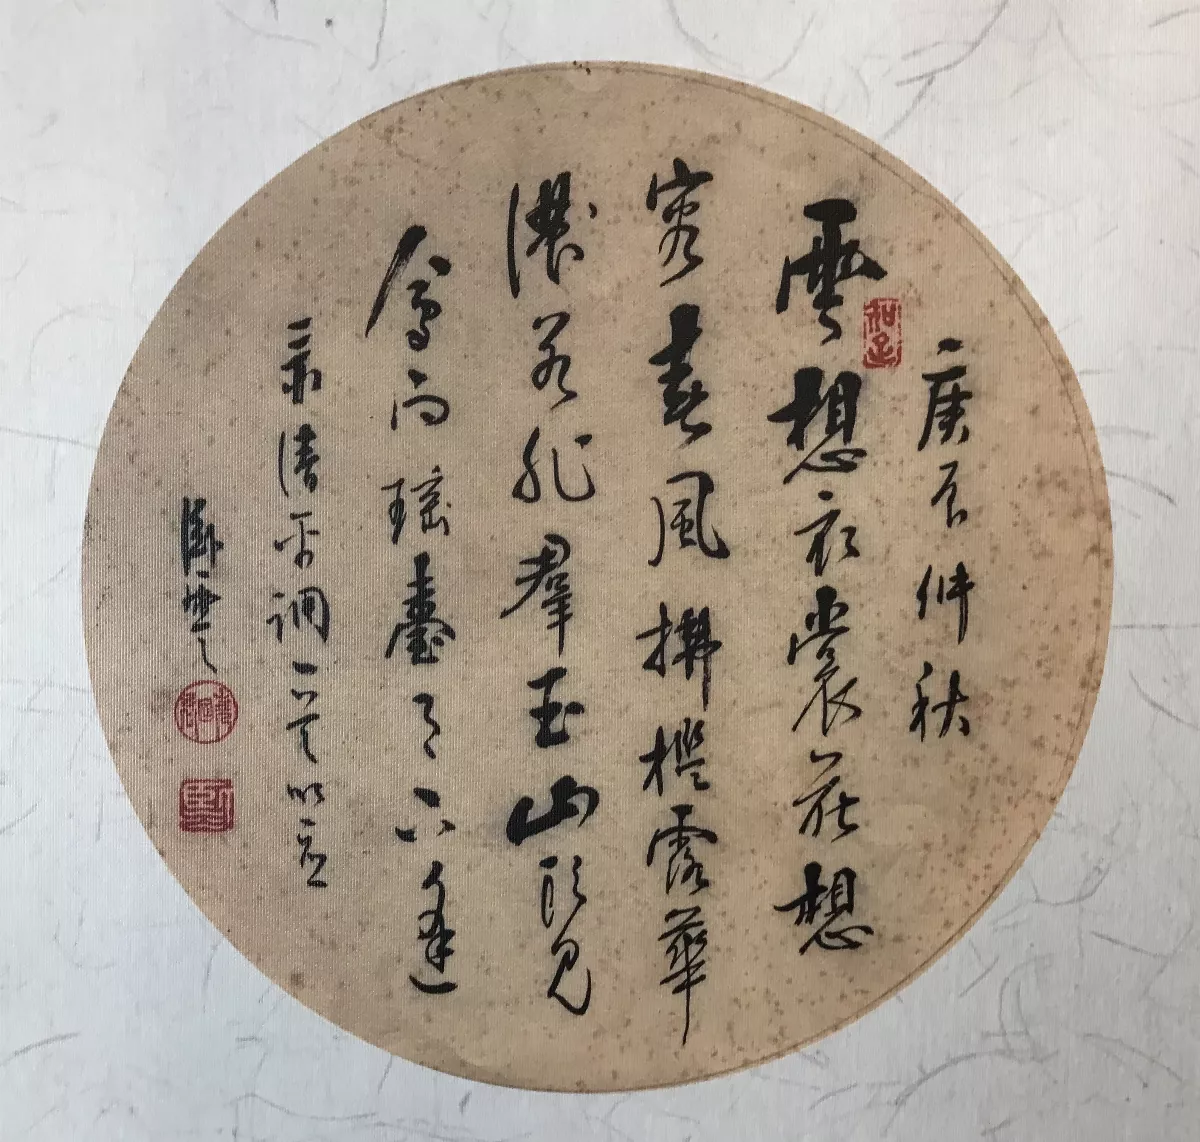 庚辰仲秋
雲想衣裳花想
容春風拂檻露華
濃若非羣玉山頭見
會向瑤臺月下逢
录清平調一首以应